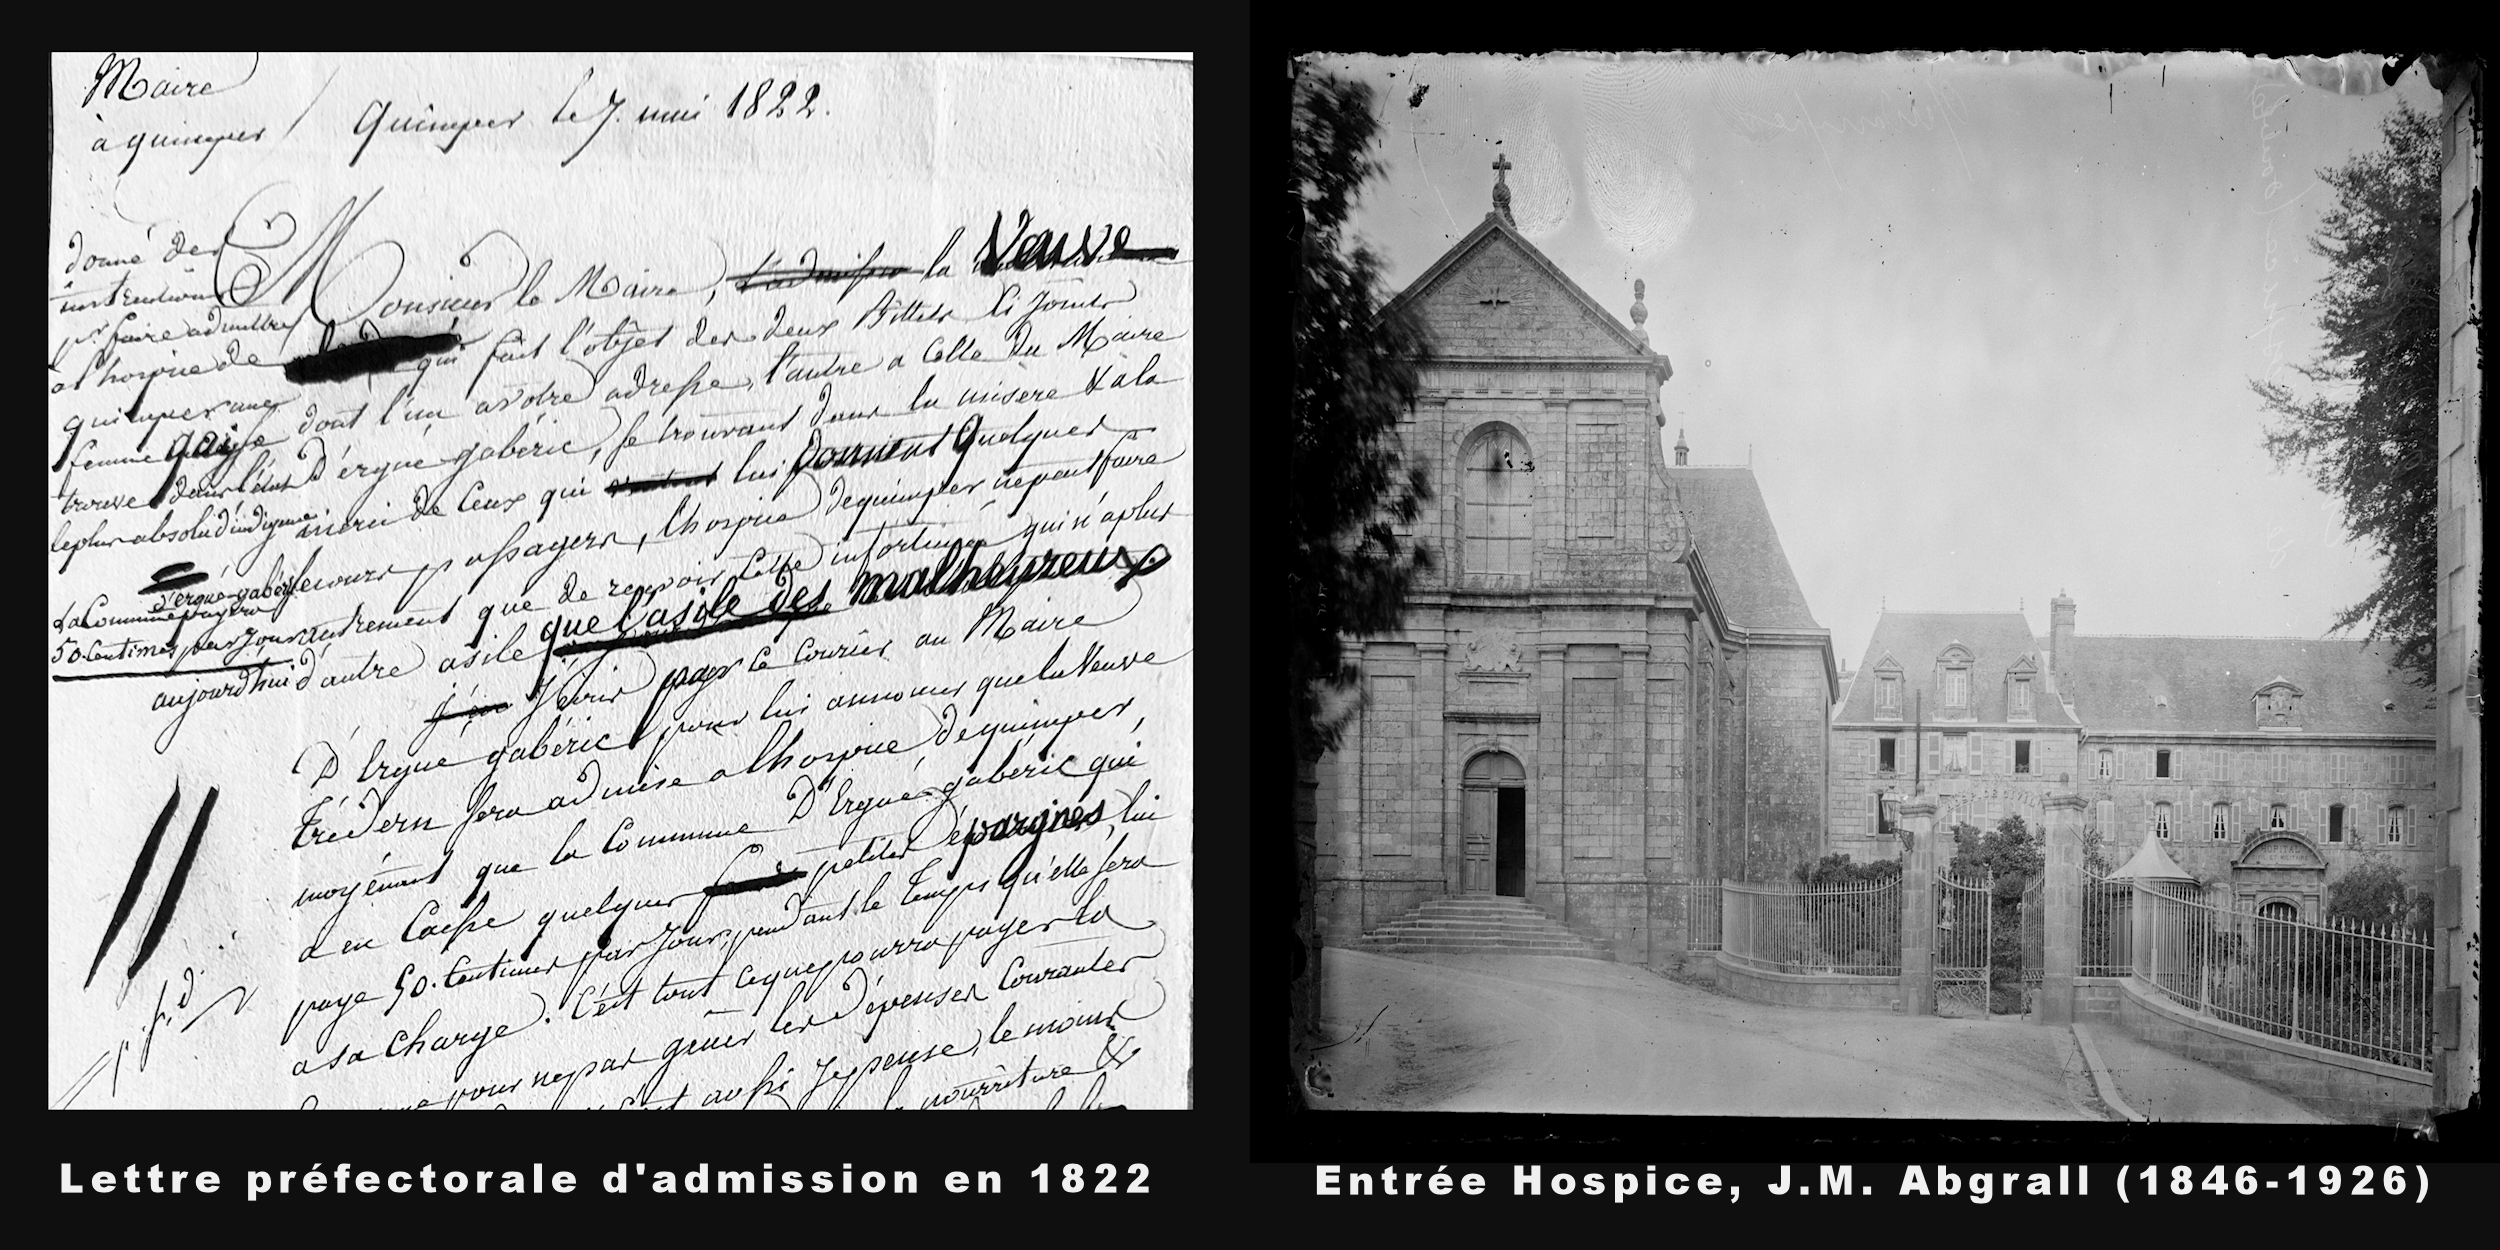 Maire
à quimper
Quimper le 7. mai 1822.
donné des
instructions
pr. faire admettre
a l'hospice de
quimper une
femme qui se
trouve dans l'état
le plus absolu d'indigence
d'ergué-gabéric
La Commune payera
50. Centimes par jour
aujourd'hui
Monsieur le Maire, la Veuve
qui fait l'objet des deux Billets Ci Joints
dont l'un a votre adresse, l'autre a Celle du Maire
D'ergué-gabéric, se trouvant dans la misere & a la
merci de Ceux qui lui donnent quelques
secours passagers, l'hospice de quimper ne peut faire
autrement que de recevoir Cette infortunée qui n'a plus
d'autre asile que l'asile des malheureux.
J'écris par ce Courier au Maire
D'Ergué gabéric pour lui annoncer que la Veuve
Trédern sera admise a l'hospice de quimper,
moyénant que la Commune D'Ergué-gabéric qui
a en Caisse quelques petites épargnes, lui
paye 50. Centimes par Jour, pendant le temps qu'elle sera
a sa charge. C'est tout ce que pourra payer la
pour ne pas gêner les dépenses Courantes
aussi Je pense, le moins
nourriture &
HOPITAL
Lettre préfectorale d'admission en 1822
Entrée Hospice, J.M. Abgrall (1846-1926)